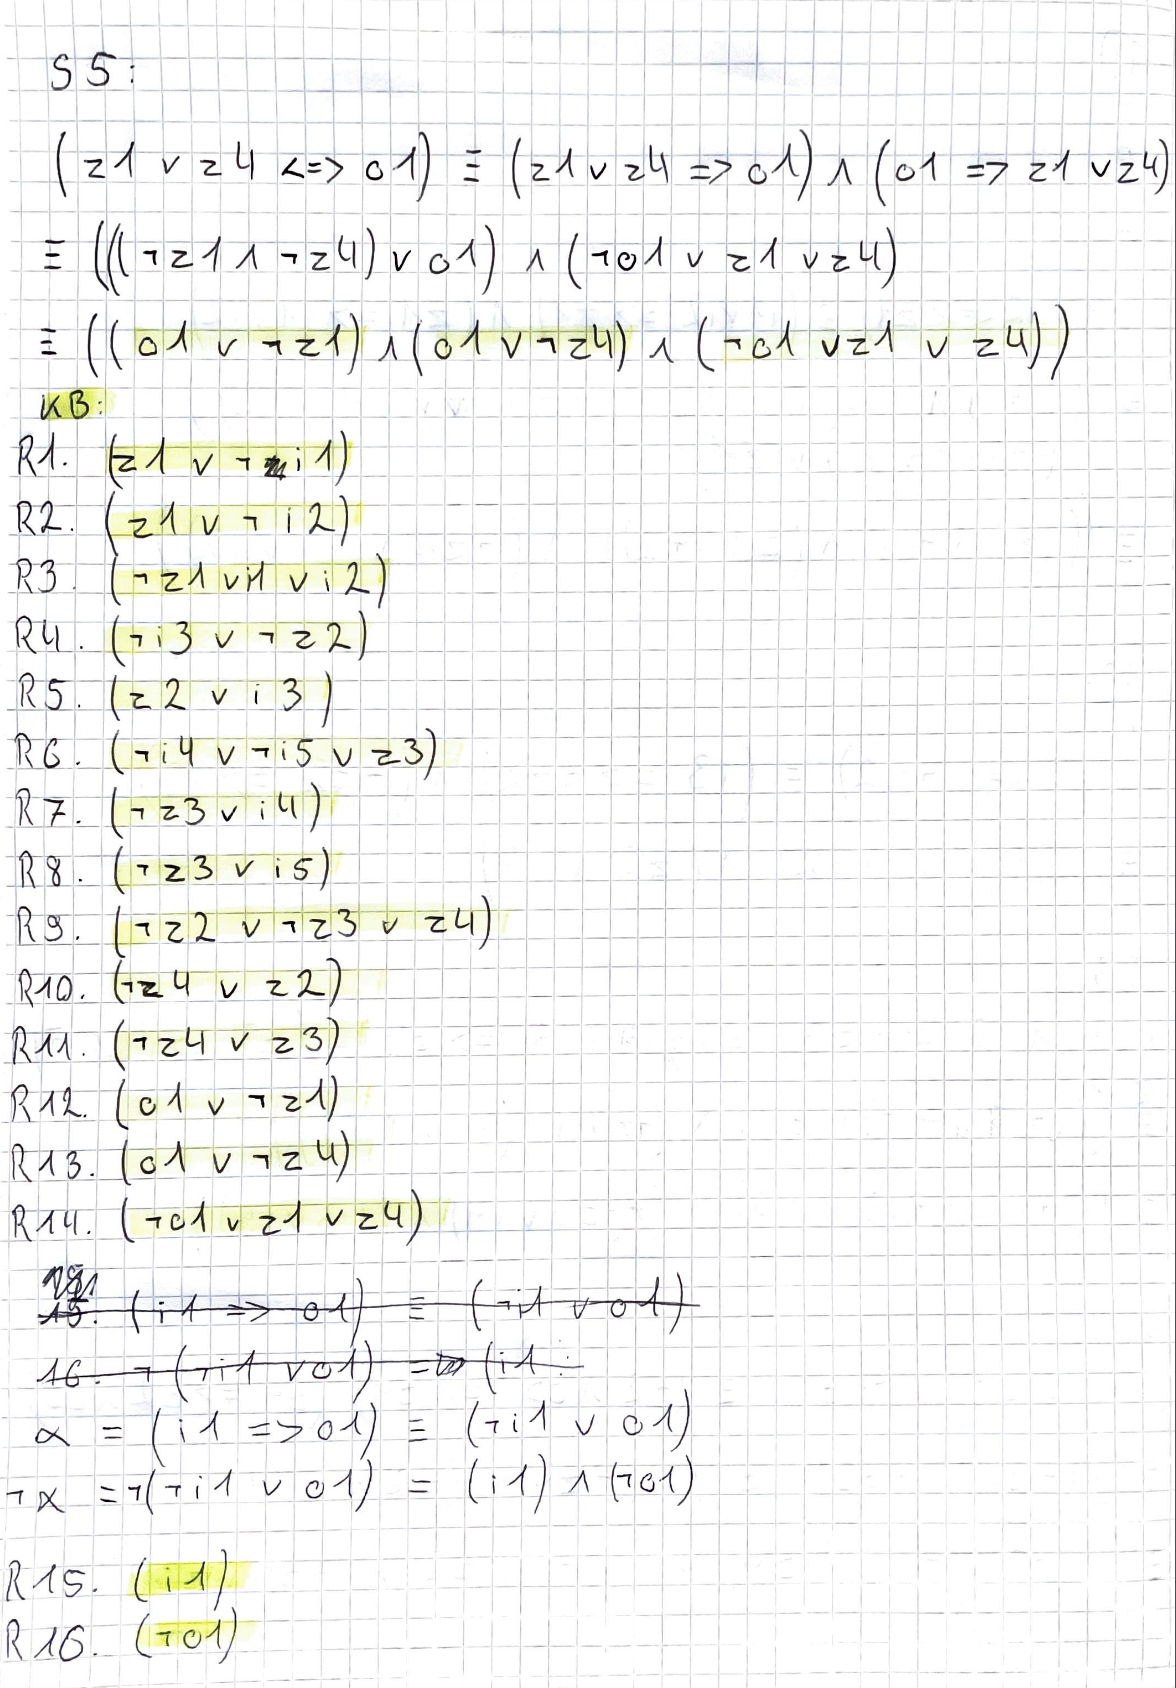 S5:
(z1 ∨ z4 <=> o1) ≡ (z1 ∨ z4 => o1) ∧ (o1 => z1 ∨ z4)
≡ (((¬z1 ∧ ¬z4) ∨ o1) ∧ (¬o1 ∨ z1 ∨ z4)
≡ ((o1 ∨ ¬z1) ∧ (o1 ∨ ¬z4) ∧ (¬o1 ∨ z1 ∨ z4))
KB:
R1. (z1 ∨ ¬i1)
R2. (z1 ∨ ¬i2)
R3. (¬z1 ∨ i1 ∨ i2)
R4. (¬i3 ∨ ¬z2)
R5. (z2 ∨ i3)
R6. (¬i4 ∨ ¬i5 ∨ z3)
R7. (¬z3 ∨ i4)
R8. (¬z3 ∨ i5)
R9. (¬z2 ∨ ¬z3 ∨ z4)
R10. (¬z4 ∨ z2)
R11. (¬z4 ∨ z3)
R12. (o1 ∨ ¬z1)
R13. (o1 ∨ ¬z4)
R14. (¬o1 ∨ z1 ∨ z4)
15. (i1 => o1) ≡ (¬i1 ∨ o1)
16. ¬(¬i1 ∨ o1) = (i1
α = (i1 => o1) ≡ (¬i1 ∨ o1)
¬α = ¬(¬i1 ∨ o1) = (i1) ∧ (¬o1)
R15. (i1)
R16. (¬o1)